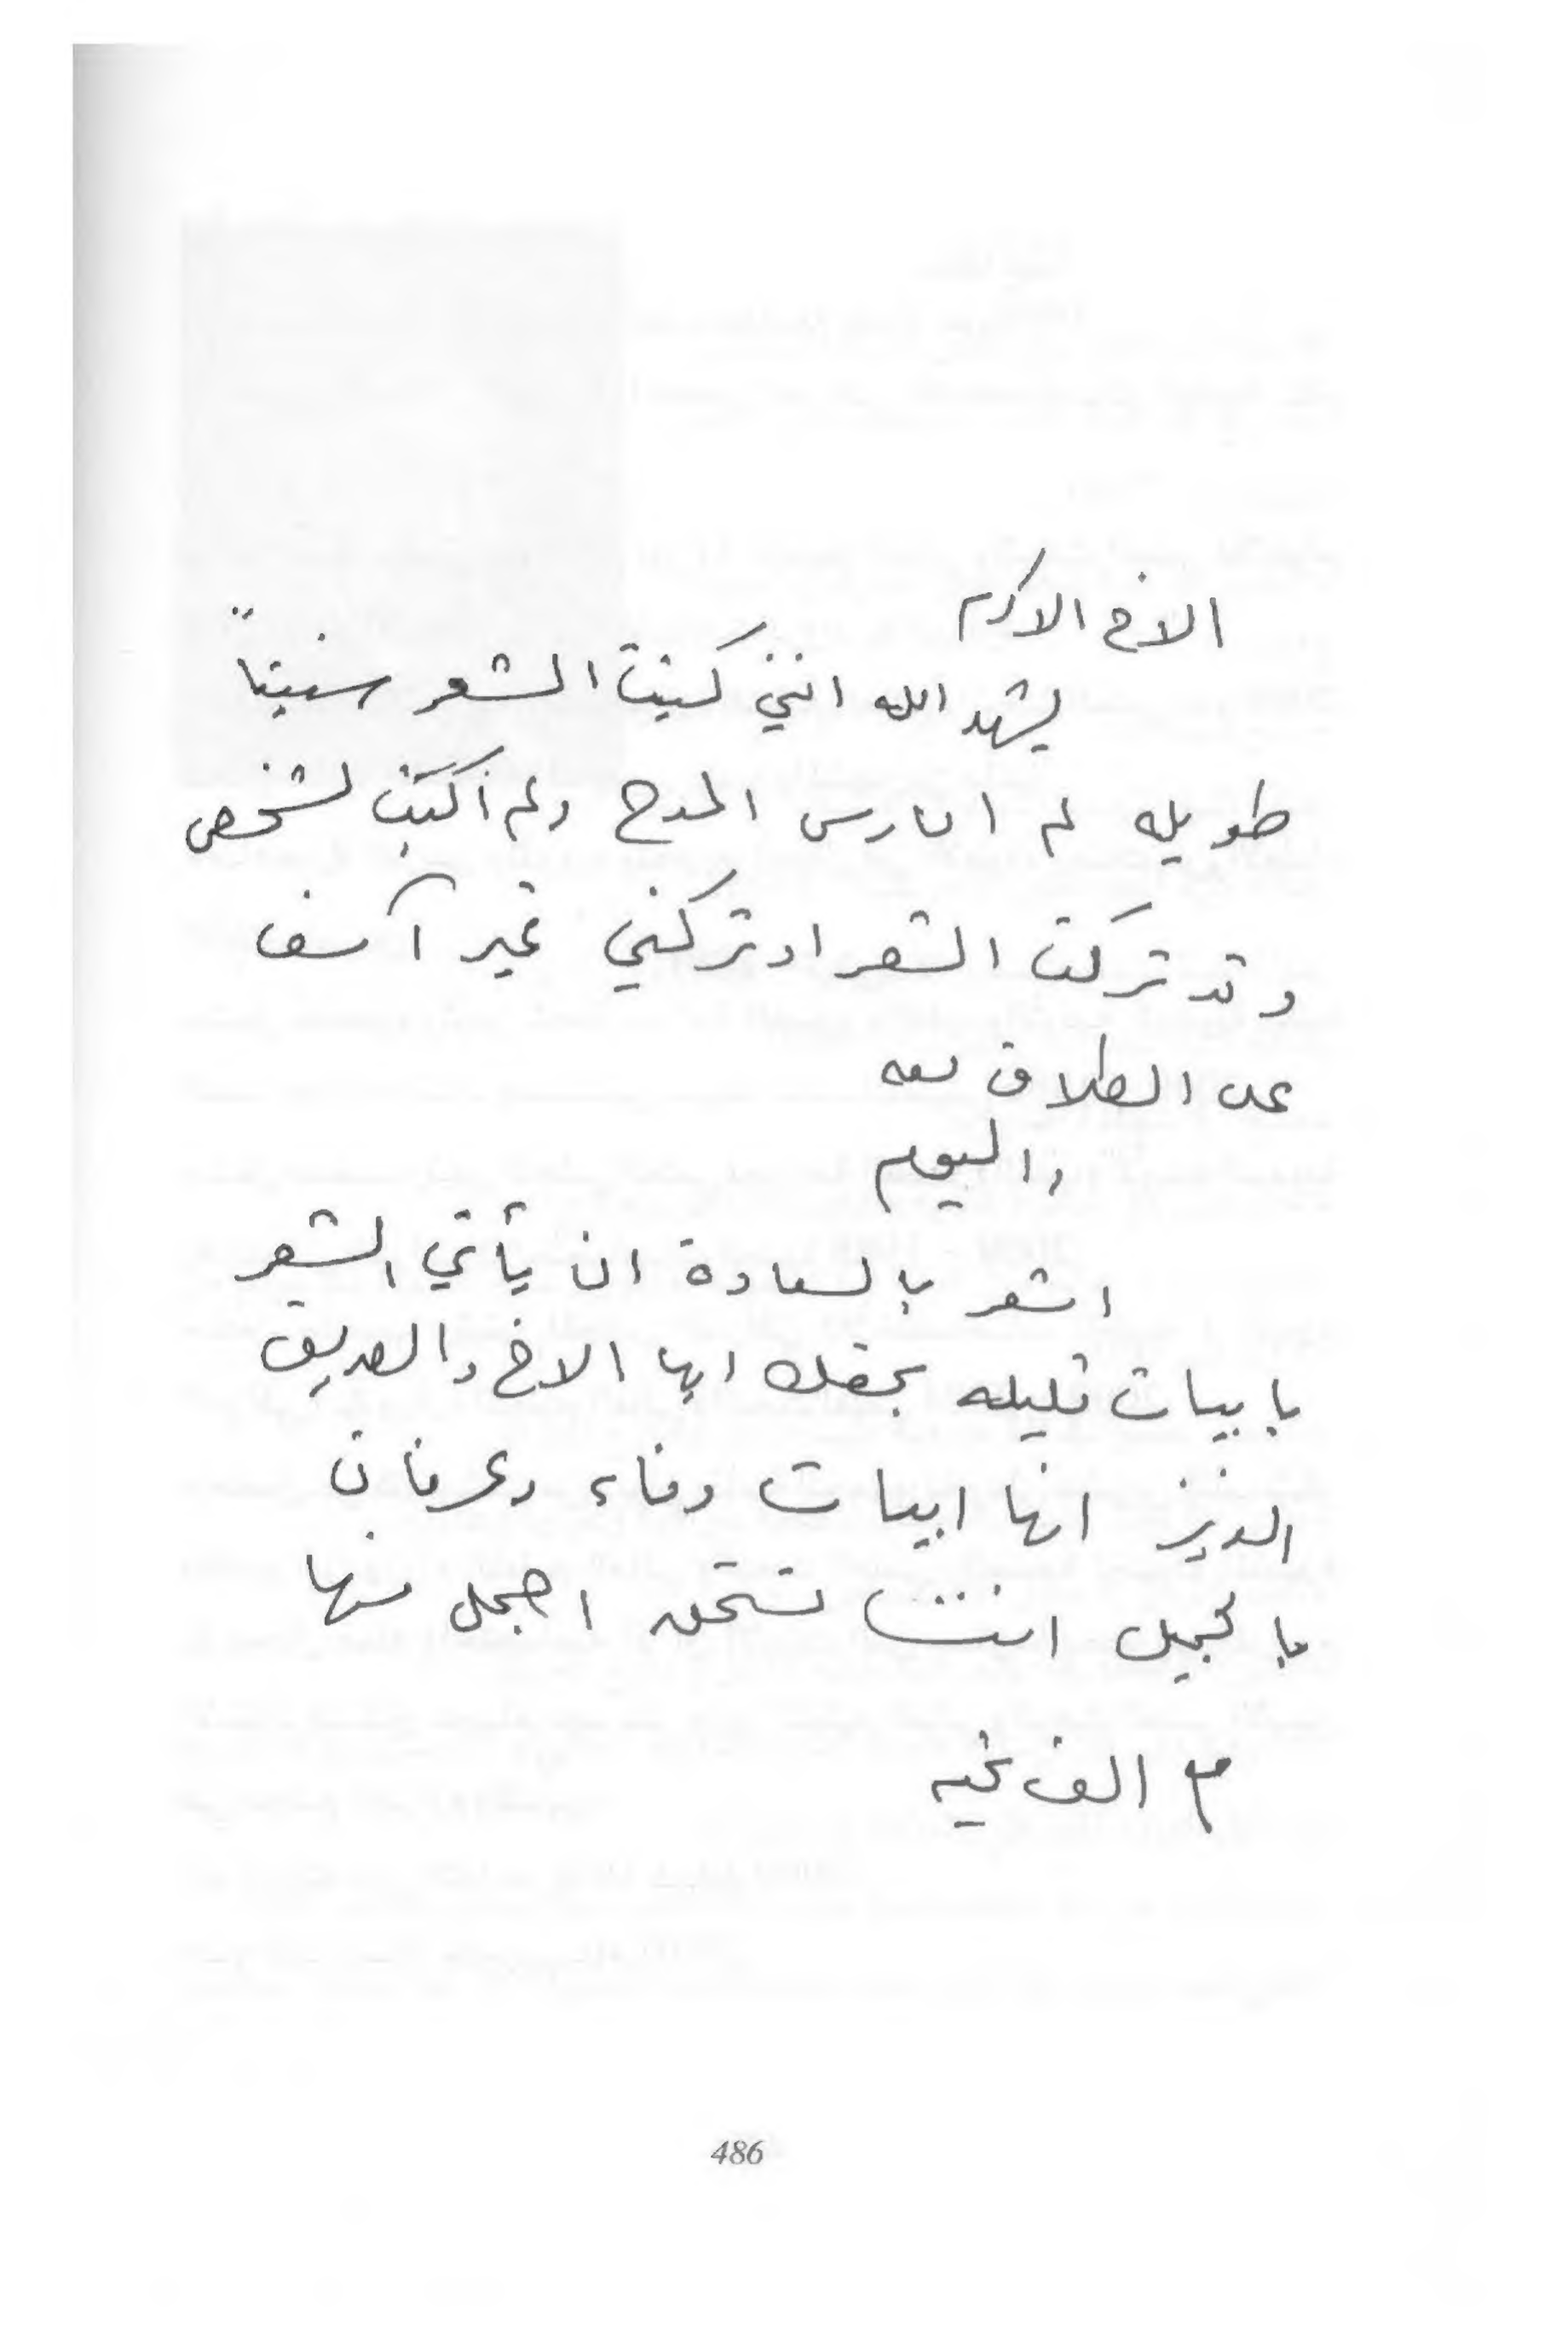 الاخ الاكرم
يشهد الله انني كتبت الشعر سنيناً
طويله لم امارس المدح ولم أكتب لشخص
وقد تركت الشعر او تركني غير آسف
على الطلاق معه
واليوم
اشعر بالسعادة ان يأتي الشعر
بابيات قليله بحقك ايها الاخ والصديق
العزيز انها ابيات وفاء وعرفان
بالجميل انت تستحق اجمل منها
مع الف تحيه
486